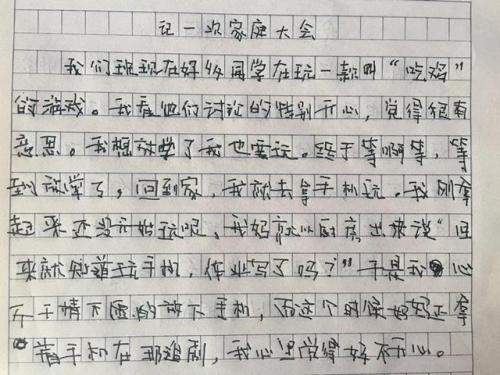 记一次家庭大会
我们班现在好多同学在玩一款叫“吃鸡”
的游戏。我看他们讨论的特别开心，觉得很有
意思。我想放学了我也要玩。终于等啊等，等
到放学了，回到家，我就去拿手机玩。我刚拿
起来还没开始玩呢，我妈就从厨房出来说“回
来就知道玩手机，作业写了吗？”于是我心
不干情不愿的放下手机，而这个时候妈妈正拿
着手机在那追剧，我心里觉得好不开心。